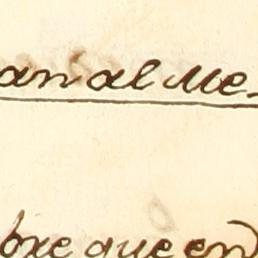 an al Me
bre que en